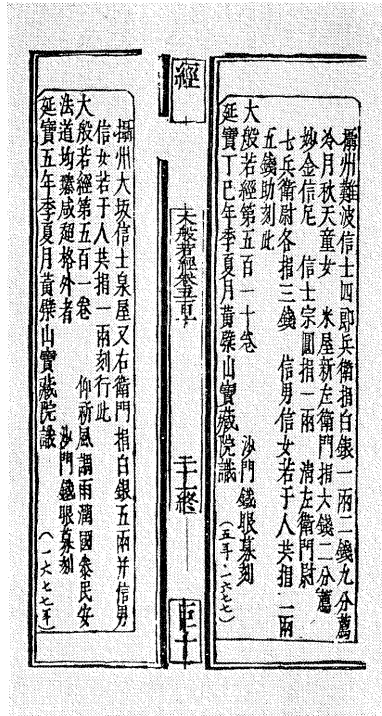 攝州難波信士四郎兵衛指白銀一兩二錢九分薦
冷月秋天童女　米屋新左衛門指大錢二分薦
妙金信尼　信士宗圓指一兩　清左衛門尉
七兵衛尉各指三錢　信男信女若于人共指一兩
五錢助刻此
大般若經第五百一十卷　沙門鐵眼募刻
延寶丁巳年季夏月黃檗山寶藏院識
(五年・一六七七)
經
大般若經卷五百十
二十一終
巨十
攝州大坂信士泉屋又右衛門指白銀五兩并信男
信女若于人共指一兩刻行此
大般若經第五百一卷　仰祈風調雨潤國泰民安
法道均霑咸超格外者　沙門鐵眼募刻
延寶五年季夏月黃檗山寶藏院識
(一六七七年)